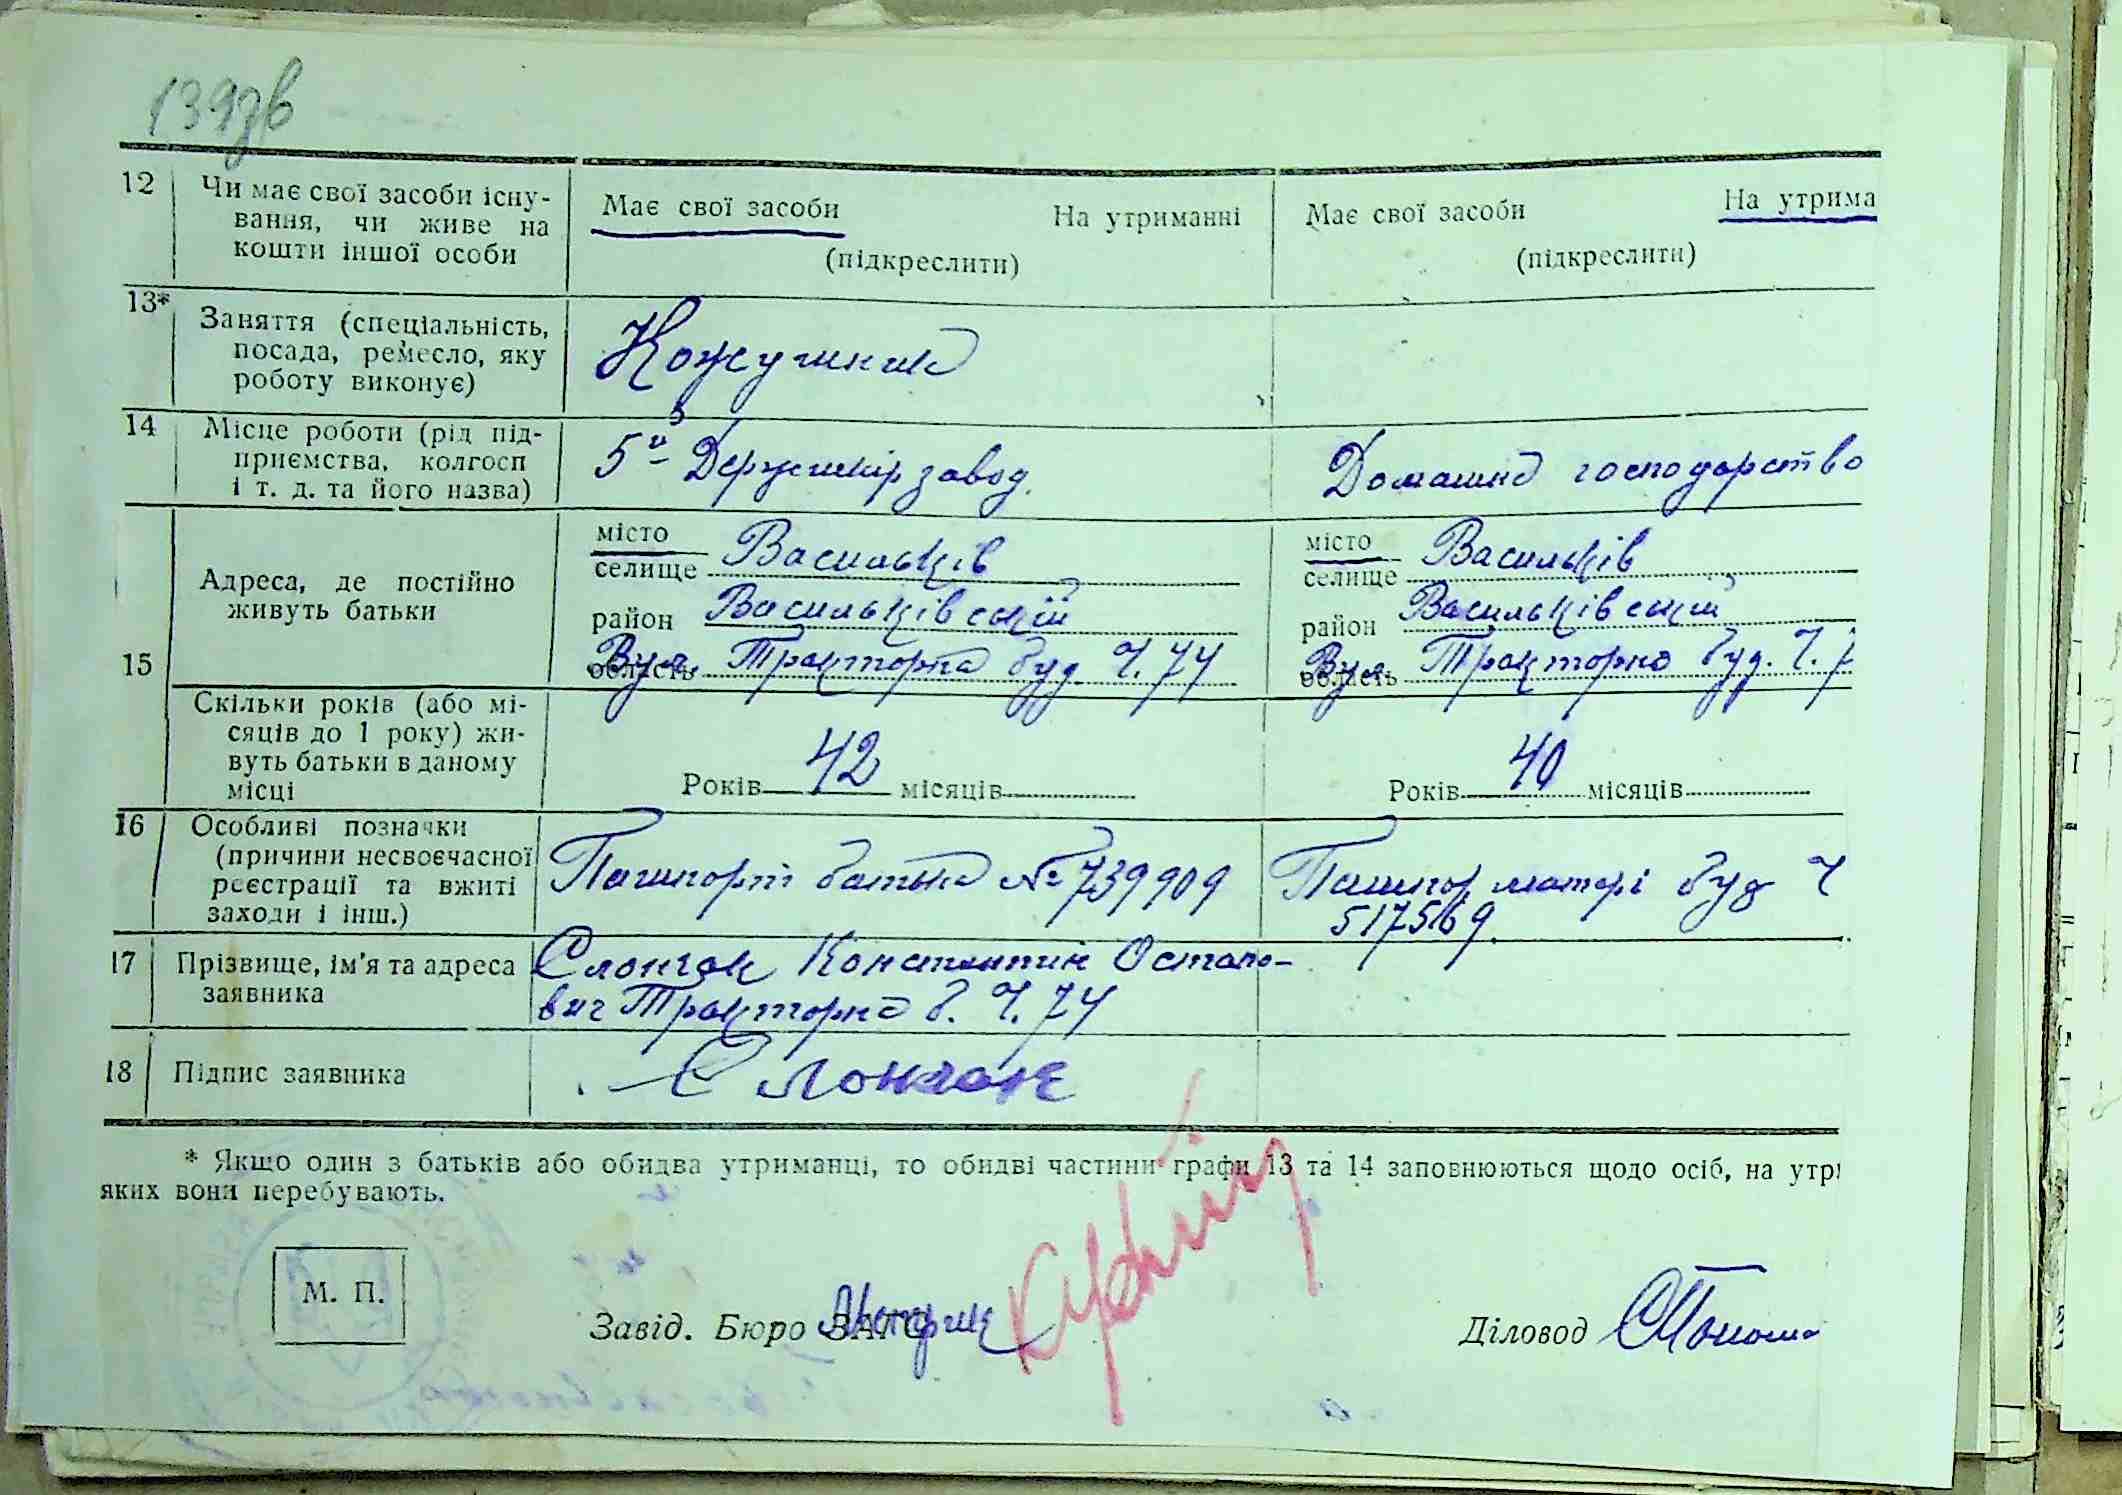 139зв
12 Чи має свої засоби існу-
вання, чи живе на
кошти іншої особи
Має свої засоби На утриманні
(підкреслити)
Має свої засоби На утрима
(підкреслити)
13* Заняття (спеціальність,
посада, ремесло, яку
роботу виконує)
Кожушник
14 Місце роботи (рід під-
приємства, колгосп
і т. д. та його назва)
5й Держшкірзавод
Домашнє господарство
15 Адреса, де постійно
живуть батьки
місто
селище Васильків
район Васильківський
область Вул. Тракторна буд Ч. 74
місто
селище Васильків
район Васильківський
область Вул Тракторна буд. Ч. 7
Скільки років (або мі-
сяців до 1 року) жи-
вуть батьки в даному
місці
Років 42 місяців
Років 40 місяців
16 Особливі позначки
(причини несвоєчасної
реєстрації та вжиті
заходи і інш.)
Пашпорт батька № 739909
Пашпор матері буд Ч
517569.
17 Прізвище, ім'я та адреса
заявника
Слончак Константин Остапо-
вич Тракторна б. Ч. 74
18 Підпис заявника
Слончак
* Якщо один з батьків або обидва утриманці, то обидві частини графи 13 та 14 заповнюються щодо осіб, на утри
яких вони перебувають.
М. П.
Завід. Бюро ЗАГС
Діловод